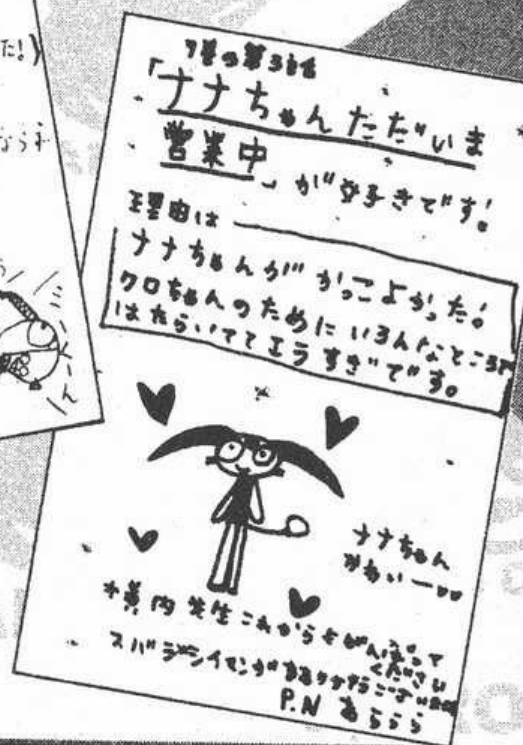 た!)
なら
7巻の第3話
「ナナちゃんただいま
営業中」が好きです!
理由は
ナナちゃんがかっこよかった!
クロちゃんのためにいろんなところで
はたらいててエラすぎです。
ナナちゃん
かわいー
横内先生これからもがんばって
ください
スバラシイマンガ
P.N あららら